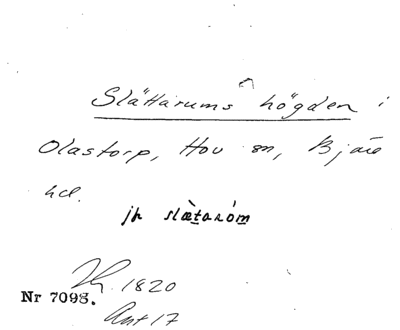 Slättarums högden i
Olastorp, Hov sn, Bjäre
hd.
jfr slæ̀tarȯ́m
1820
Nr 7098.
Ant 17